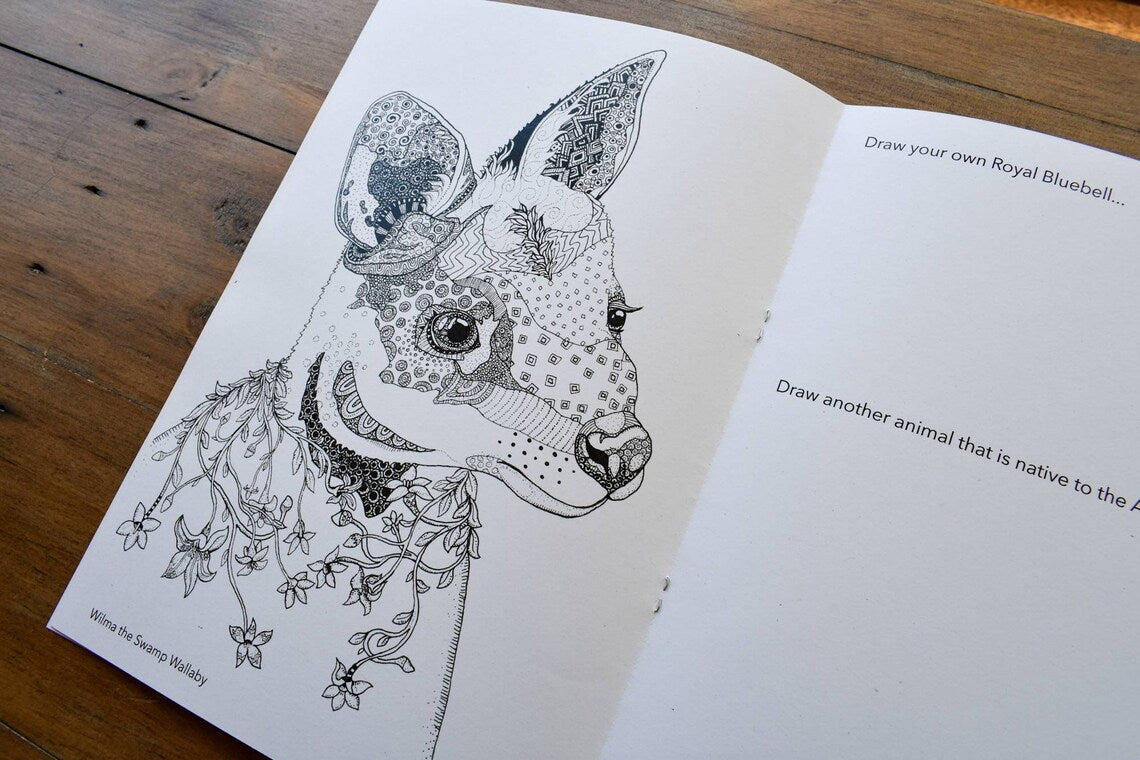 Wilma the Swamp Wallaby
Draw your own Royal Bluebell...
Draw another animal that is native to the